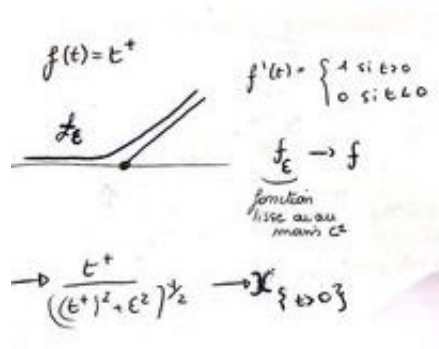 f(t) = t⁺
f'(t) = { 1 si t>0
0 si t<0
f_ε
f_ε → f
fonction
lisse ou au
moins C²
→ t⁺ / ((t⁺)² + ε²)^{1/2} → χ_{t>0}